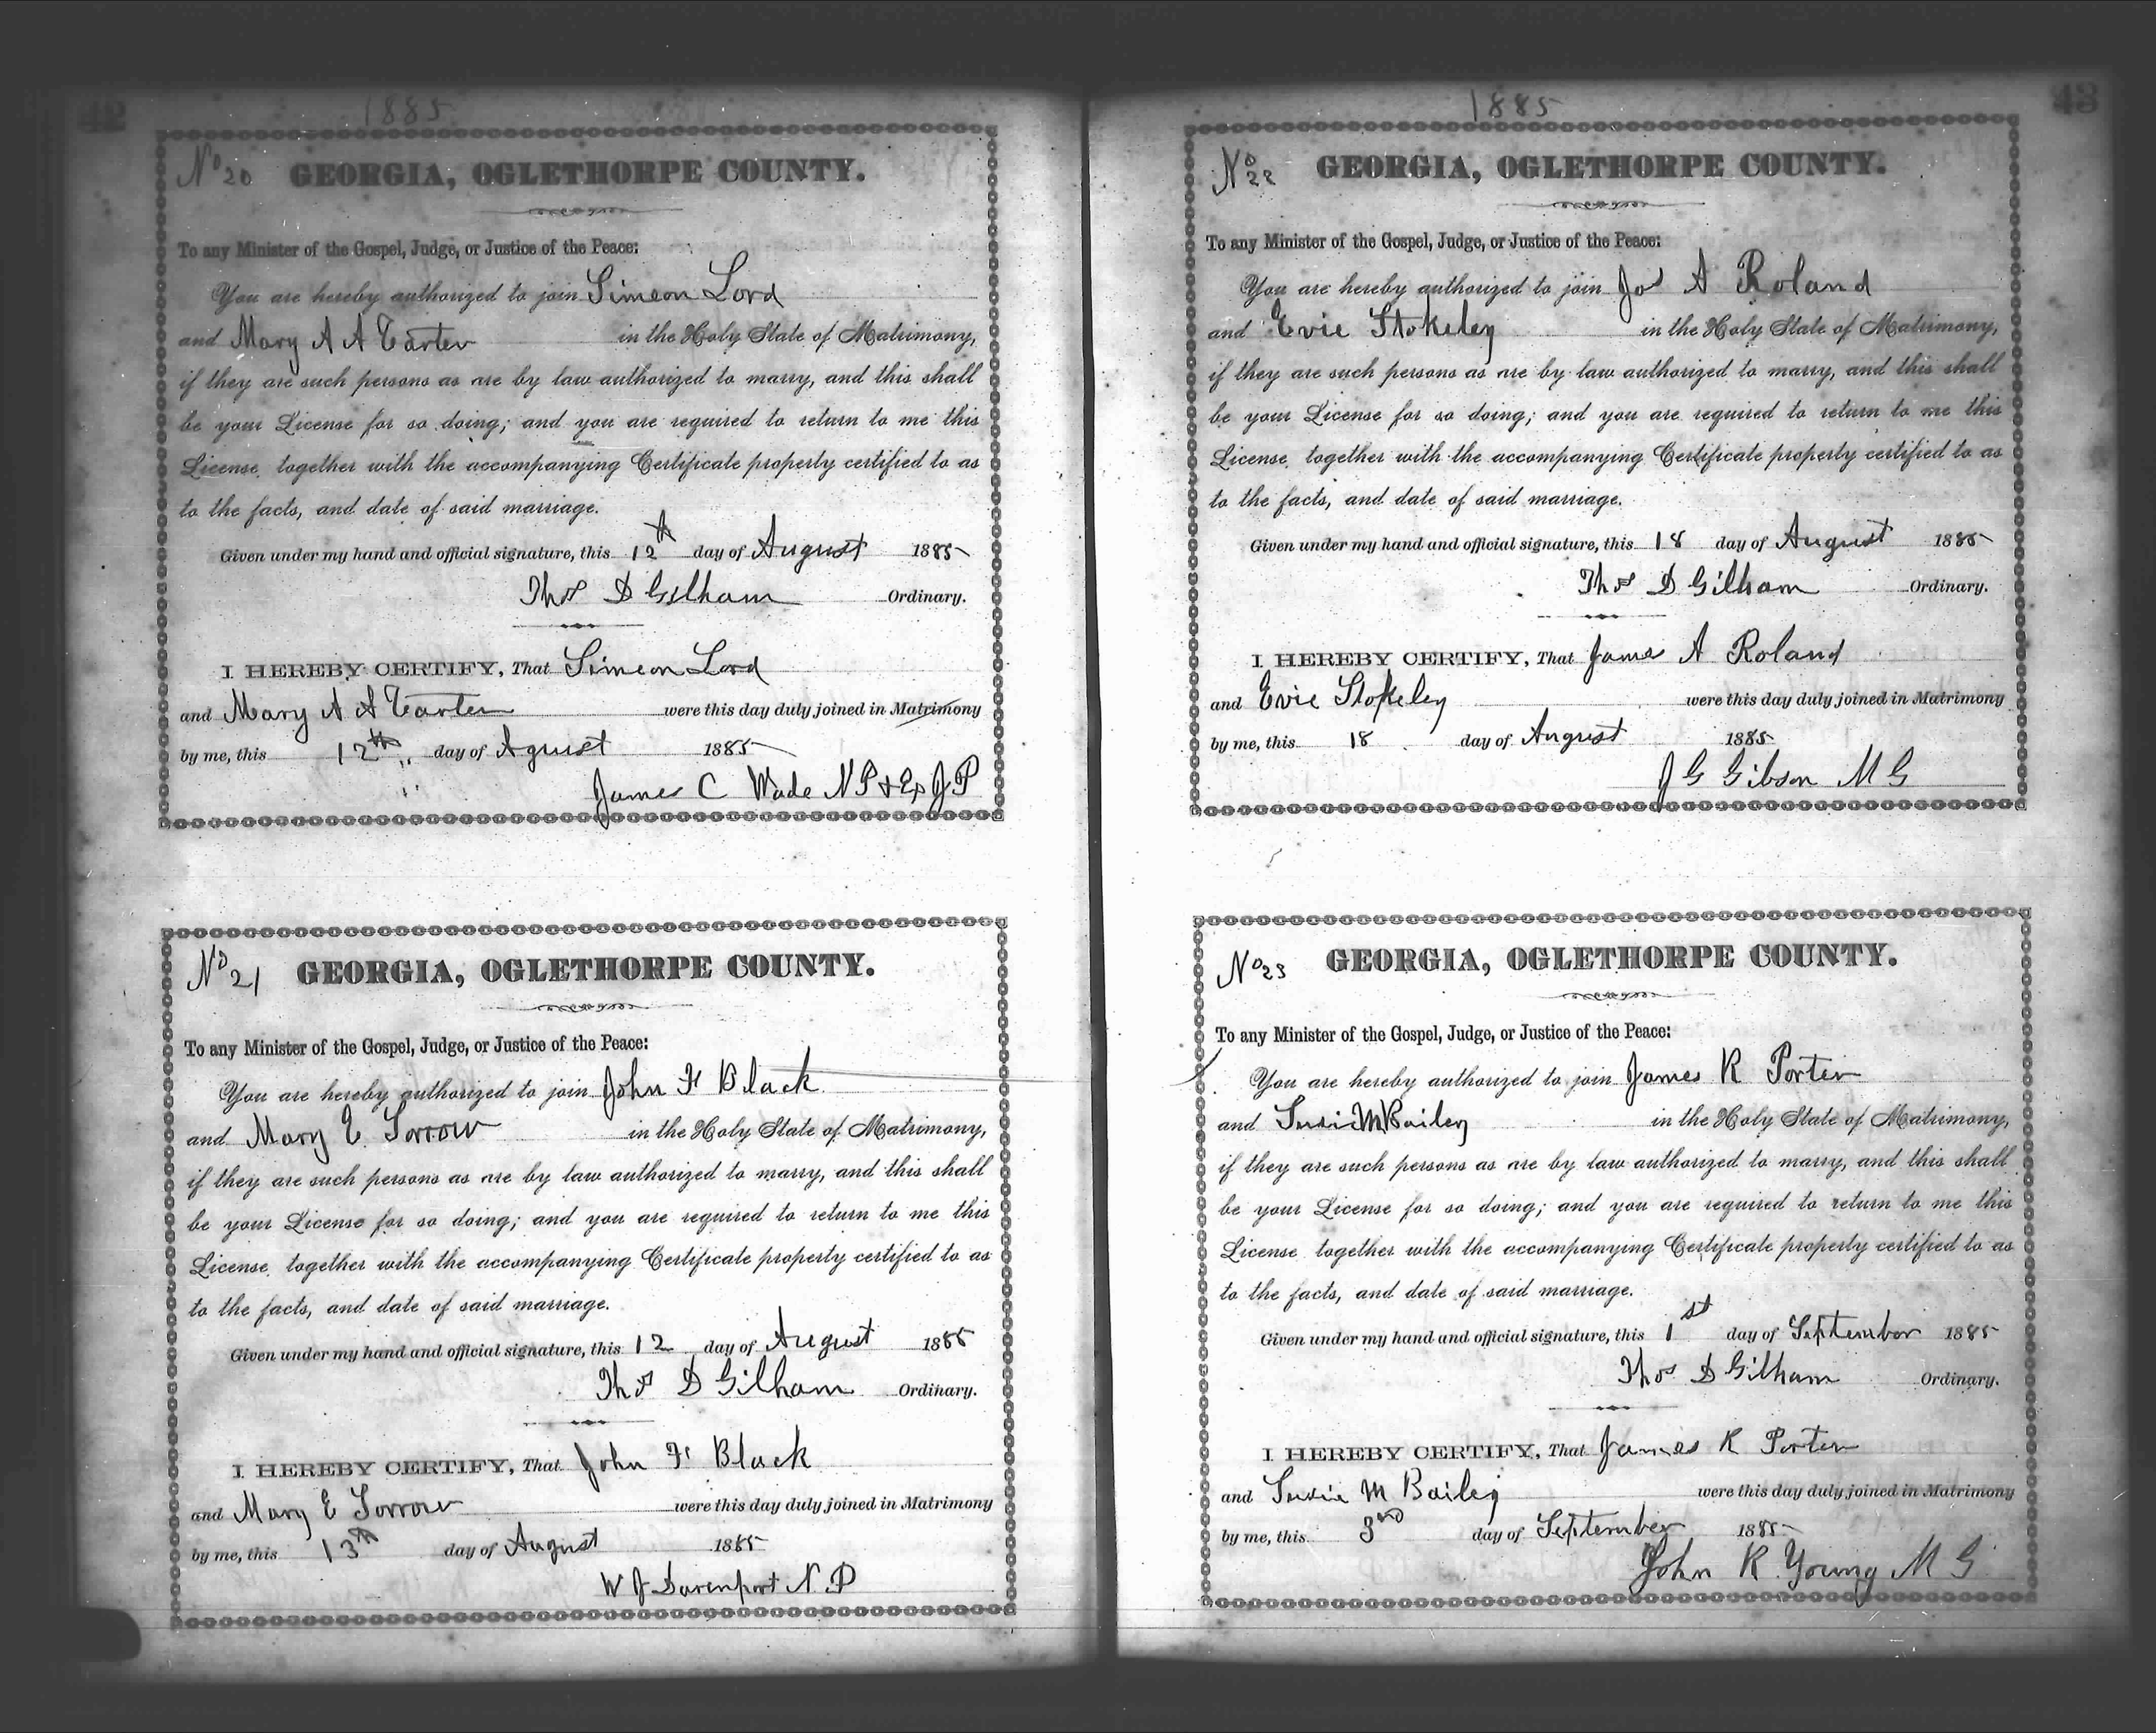 42
1885
No 20 GEORGIA, OGLETHORPE COUNTY.
To any Minister of the Gospel, Judge, or Justice of the Peace:
You are hereby authorized to join Simeon Lord
and Mary A A Carter in the Holy State of Matrimony,
if they are such persons as are by law authorized to marry, and this shall
be your License for so doing; and you are required to return to me this
License, together with the accompanying Certificate property certified to as
to the facts, and date of said marriage.
Given under my hand and official signature, this 12th day of August 1885
Thos D Gilham Ordinary.
I HEREBY CERTIFY, That Simeon Lord
and Mary A A Carter were this day duly joined in Matrimony
by me, this 12th day of Agust 1885
James C Wade N P & Ex J P
No 21 GEORGIA, OGLETHORPE COUNTY.
To any Minister of the Gospel, Judge, or Justice of the Peace:
You are hereby authorized to join John F Black
and Mary E Torrow in the Holy State of Matrimony,
if they are such persons as are by law authorized to marry, and this shall
be your License for so doing; and you are required to return to me this
License, together with the accompanying Certificate property certified to as
to the facts, and date of said marriage.
Given under my hand and official signature, this 12 day of August 1885
Thos D Gilham Ordinary.
I HEREBY CERTIFY, That John F Black
and Mary E Torrow were this day duly joined in Matrimony
by me, this 13th day of August 1885
W J Davenport N.P
43
1885
No 22 GEORGIA, OGLETHORPE COUNTY.
To any Minister of the Gospel, Judge, or Justice of the Peace:
You are hereby authorized to join Jas A Roland
and Evie Stokeley in the Holy State of Matrimony,
if they are such persons as are by law authorized to marry, and this shall
be your License for so doing; and you are required to return to me this
License, together with the accompanying Certificate property certified to as
to the facts, and date of said marriage.
Given under my hand and official signature, this 18 day of August 1885
Thos D Gilham Ordinary.
I HEREBY CERTIFY, That James A Roland
and Evie Stokeley were this day duly joined in Matrimony
by me, this 18 day of August 1885
J G Gibson M G
No 23 GEORGIA, OGLETHORPE COUNTY.
To any Minister of the Gospel, Judge, or Justice of the Peace:
You are hereby authorized to join James R Porter
and Susie M Bailey in the Holy State of Matrimony,
if they are such persons as are by law authorized to marry, and this shall
be your License for so doing; and you are required to return to me this
License, together with the accompanying Certificate property certified to as
to the facts, and date of said marriage.
Given under my hand and official signature, this 1st day of September 1885
Thos D Gilham Ordinary.
I HEREBY CERTIFY, That James R Porter
and Susie M Bailey were this day duly joined in Matrimony
by me, this 3rd day of September 1885
John R Young M G